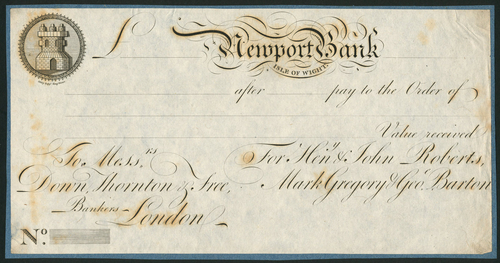 £ Newport Bank
ISLE OF WIGHT
after pay to the Order of
Value received
To Mess.rs For Hen.y & John Roberts,
Down, Thornton & Free, Mark Gregory & Geo. Barton
Bankers London
No.